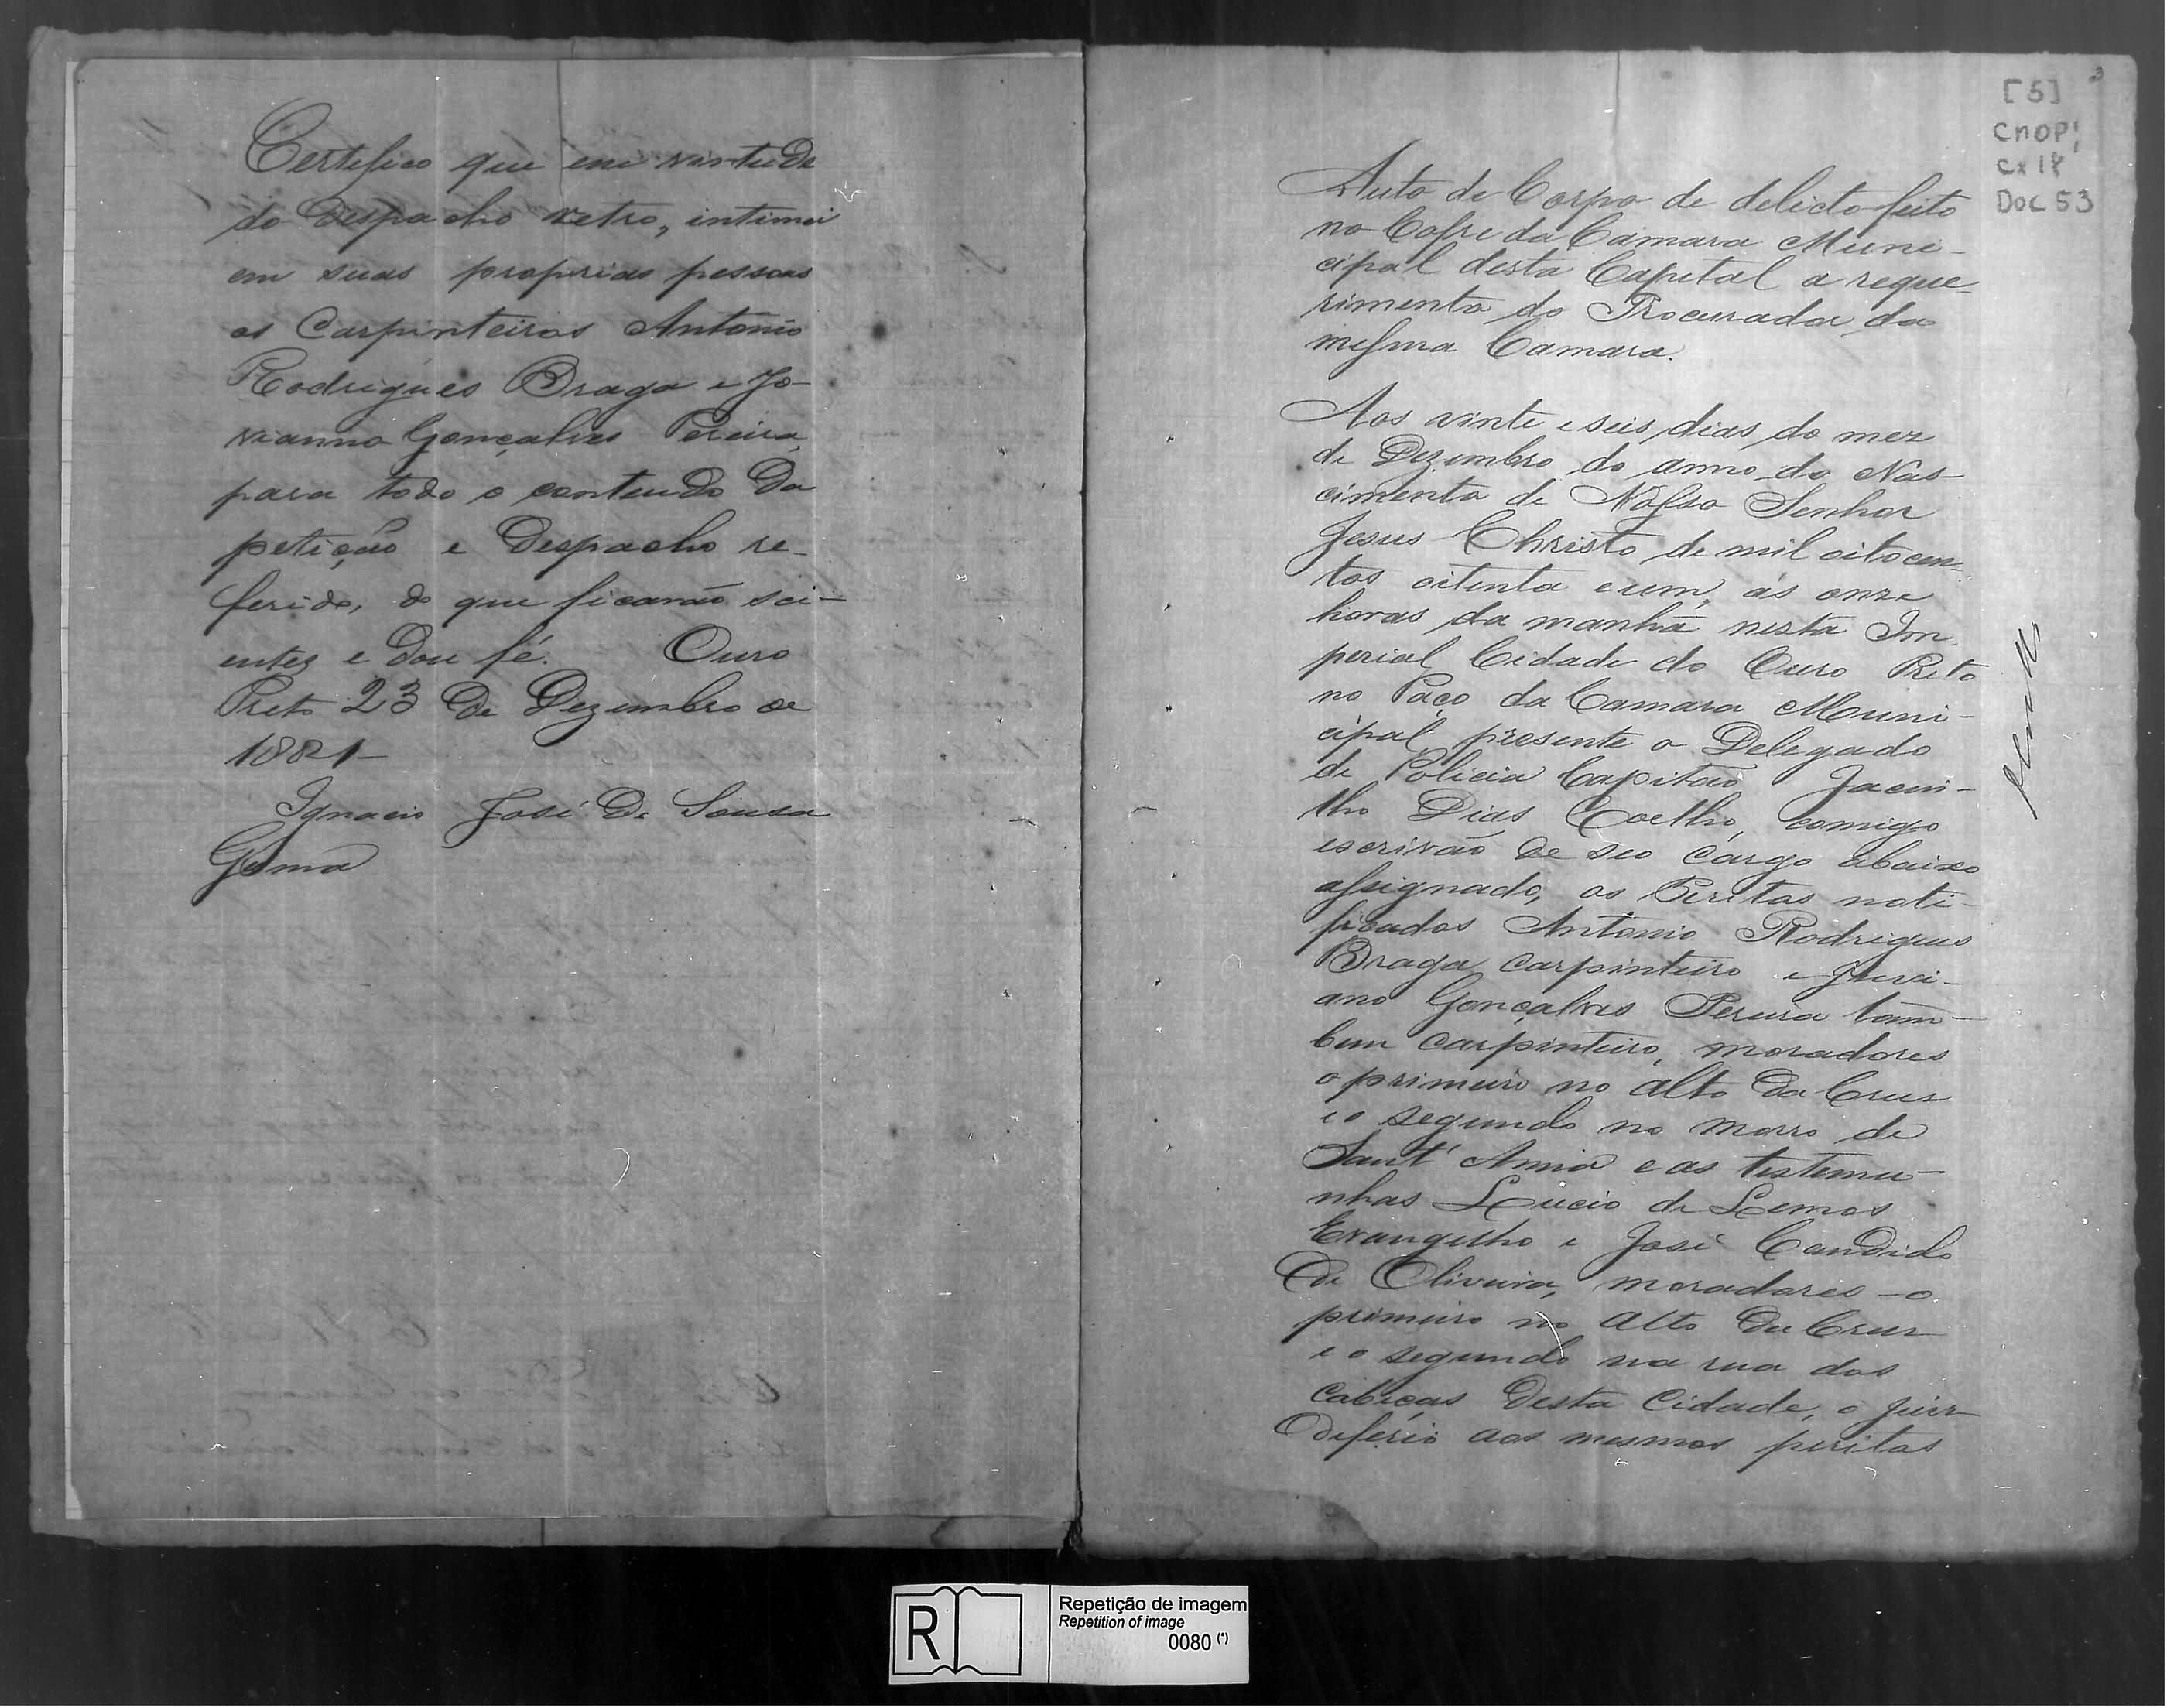 Certifico que em virtude
do despacho retro, intimei
em suas proprias pessoas
os Carpinteiros Antonio
Rodrigues Braga e Jo-
vianno Gonçalves Pereira,
para todo o conteudo da
petição e despacho re-
ferido, do que ficarão sci-
entes e dou fé. Ouro
Preto 23 de Dezembro de
1881-
Ignacio José de Sousa
Gama
[5]
CMOP
Cx 18
Doc 53
3
Auto de Corpo de delicto feito
no Cofre da Camara Muni-
cipal desta Capital a reque-
rimento do Procurador da
mesma Camara.
Aos vinte e seis dias do mez
de Dezembro do anno do Nas-
cimento de Nosso Senhor
Jesus Christo de mil oitocen-
tos oitenta e um, ás onze
horas da manhã nesta Im-
perial Cidade do Ouro Preto
no Paço da Camara Muni-
cipal, presente o Delegado
de Policia Capitão Jacin-
tho Dias Coelho, comigo
escrivão de seo cargo abaixo
assignado, os Peritos noti-
ficados Antonio Rodrigues
Braga carpinteiro e Juvi-
ano Gonçalves Pereira tam-
bem carpinteiro, moradores
o primeiro no alto da Cruz
e o segundo no morro de
Sant'Anna e as testemu-
nhas Lucio de Lemos
Evangelho e José Candido
de Oliveira, moradores - o
primeiro no alto da Cruz
e o segundo na rua das
Cabeças desta Cidade, o Juiz
deferio aos mesmos peritos
R
Repetição de imagem
Repetition of image
0080 (*)